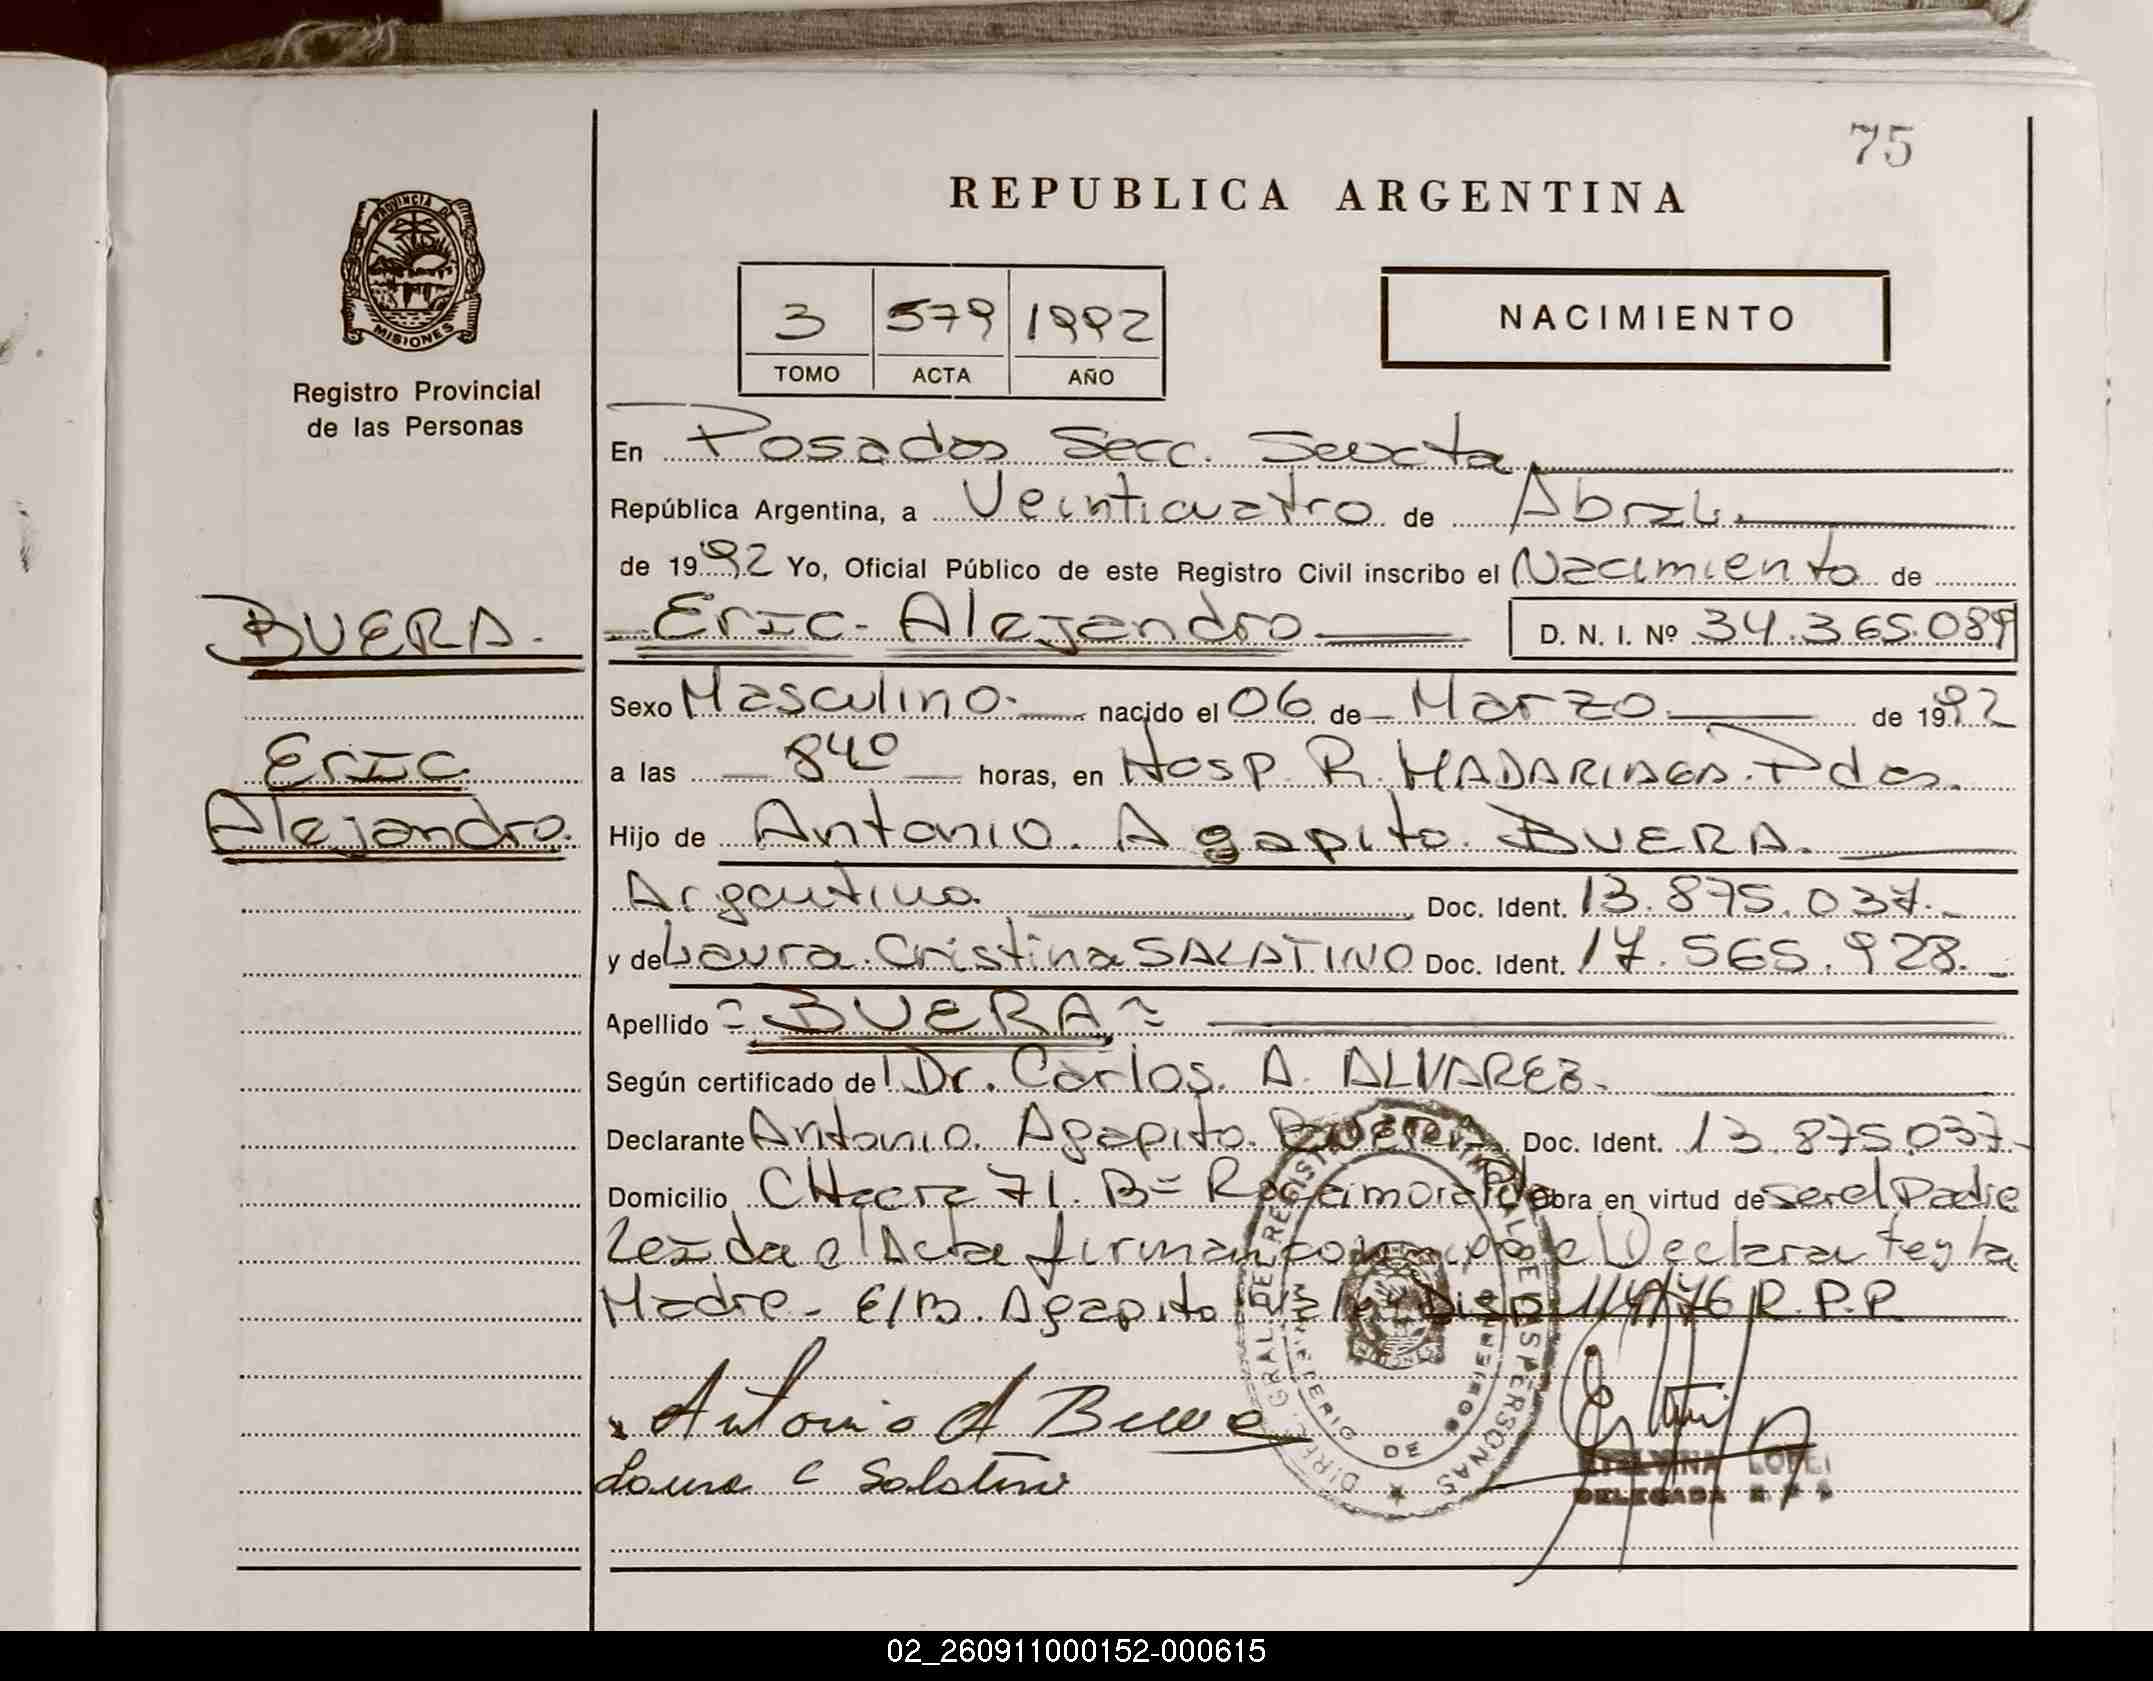 75
REPUBLICA ARGENTINA
PROVINCIA DE
MISIONES
Registro Provincial
de las Personas
3 579 1992
TOMO ACTA AÑO
NACIMIENTO
En Posadas Secc. Sexta
República Argentina, a Veinticuatro de Abril.
de 1992 Yo, Oficial Público de este Registro Civil inscribo el Nacimiento de
BUERA.
Eric Alejandro
D. N. I. Nº 34.365.089
Sexo Masculino. nacido el 06 de Marzo de 1992
Eric
a las 840 horas, en Hosp. R. MADARIAGA. Pdas.
Alejandro.
Hijo de Antonio. Agapito. BUERA.
Argentino. Doc. Ident. 13.875.037.
y de Laura. Cristina SALATINO Doc. Ident. 17.565.928.
Apellido = BUERA =
Según certificado de Dr. Carlos. A. ALVAREZ.
Declarante Antonio. Agapito. Doc. Ident. 13.875.037.
Domicilio CHacra 71. Bº Obra en virtud de ser el Padre
Leida el Acta firman el Declarante y la
Madre - E/B. Agapito Disp 114/76 R.P.P.
Antonio A Buera
Laura C Salatino
DIREC. GRAL DEL REGISTRO PROVINCIAL DE LAS PERSONAS
MINISTERIO DE GOBIERNO
DELEGADA
02_260911000152-000615